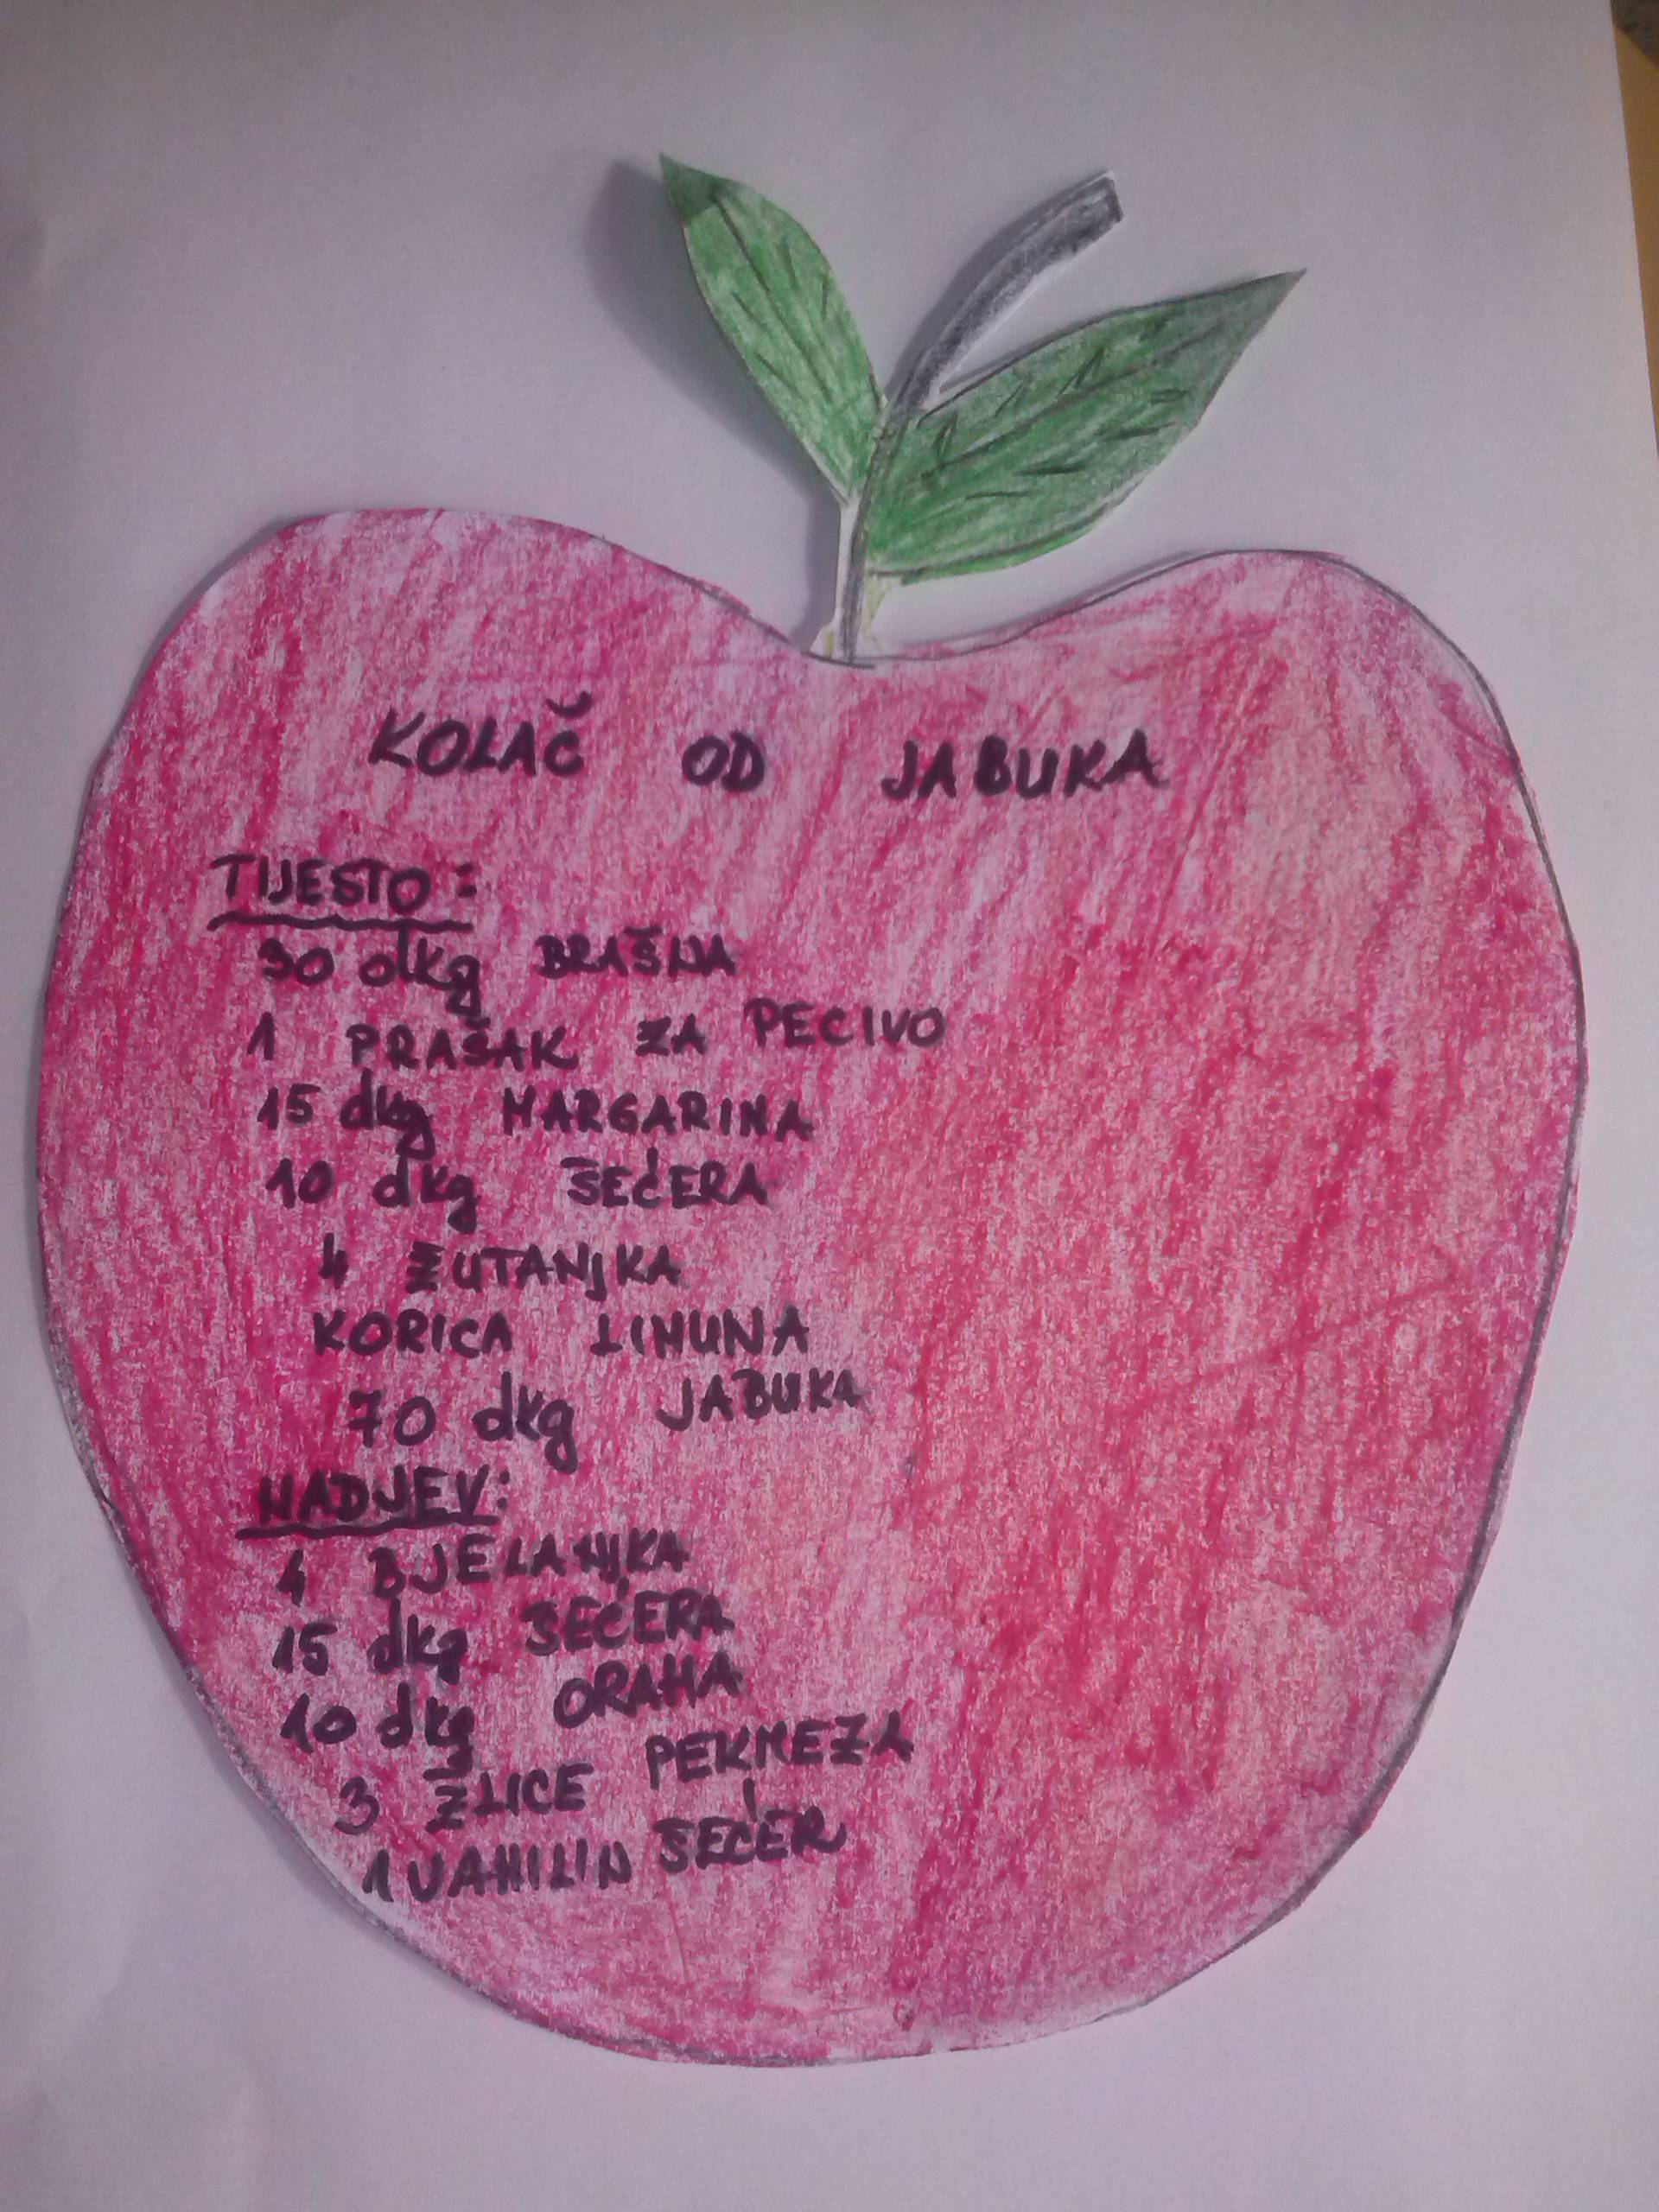 KOLAČ OD JABUKA
TIJESTO:
30 dkg BRAŠNA
1 PRAŠAK ZA PECIVO
15 dkg MARGARINA
10 dkg ŠEĆERA
4 ŽUTANJKA
KORICA LIMUNA
70 dkg JABUKA
NADJEV:
4 BJELANJKA
15 dkg ŠEĆERA
10 dkg ORAHA
3 ŽLICE PEKMEZA
1 VANILIN ŠEĆER